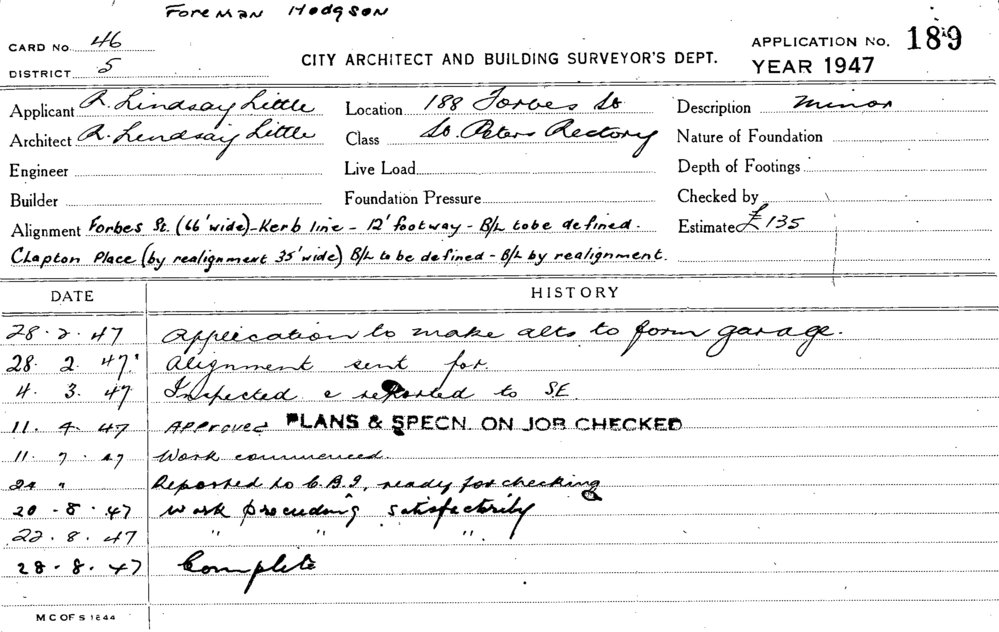 Foreman Hodgson
CARD No. 46
DISTRICT 5
CITY ARCHITECT AND BUILDING SURVEYOR'S DEPT.
APPLICATION No. 189
YEAR 1947
Applicant R. Lindsay Little Location 188 Forbes St Description Minor
Architect R. Lindsay Little Class St. Peters Rectory Nature of Foundation
Engineer Live Load Depth of Footings
Builder Foundation Pressure Checked by
Alignment Forbes St. (66' wide) - Kerb line - 12' footway - B/L to be defined. Estimate £135
Clapton Place (by realignment 35' wide) B/L to be defined - B/L by realignment.
DATE HISTORY
28.2.47 Application to make alts to form garage.
28.2.47 Alignment sent for
4.3.47 Inspected & reported to SE
11.4.47 Approved PLANS & SPECN. ON JOB CHECKED
11.7.47 Work commenced.
24 " Reported to C.B.I, ready for checking
20.8.47 Work proceeding satisfactorily
22.8.47 " " "
28.8.47 Complete
M C OF S 1244